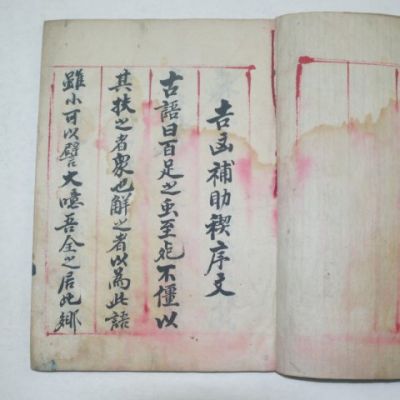 吉凶補助稧序文
古語曰百足之虫至死不僵以
其扶之者衆也解之者以爲此語
雖小可以譬大噫吾全之居此鄕